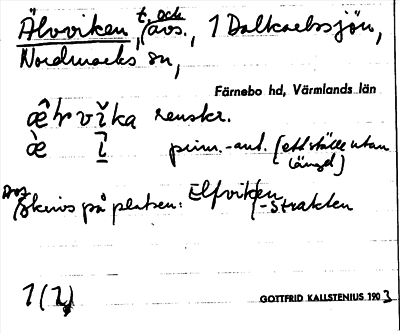 Älvviken, t. och avs., i Dalkarlssjön,
Nordmarks sn,
Färnebo hd, Värmlands län
renskr.
prim.-ant. (ett ställe utan längd)
Skrivs på platsen: Elfviken
-trakten
1(2)
GOTTFRID KALLSTENIUS 1903